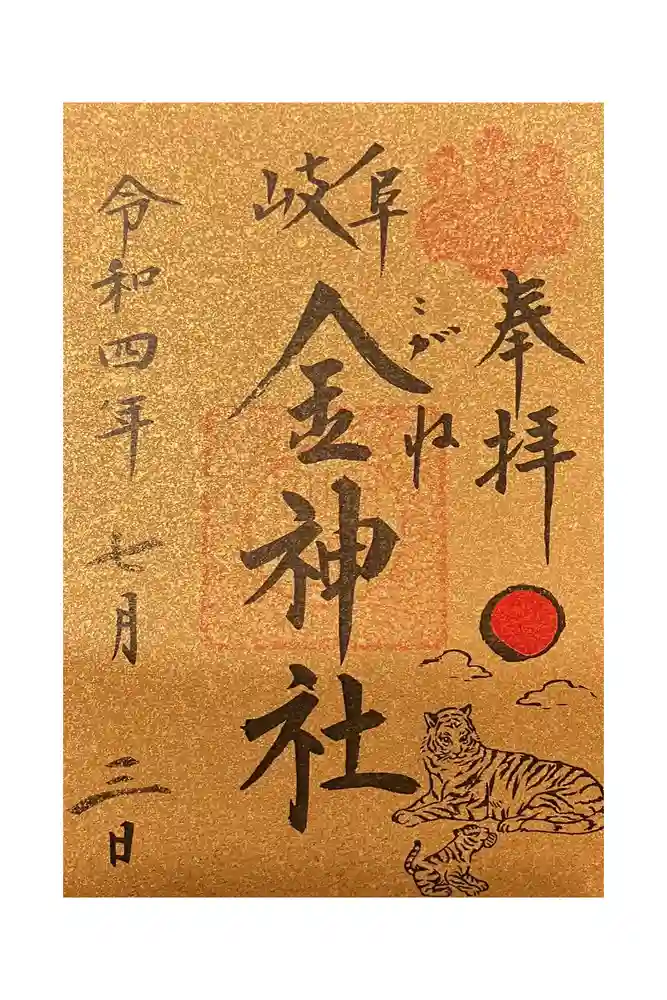 奉拝
岐阜
こがね
金神社
令和四年七月三日